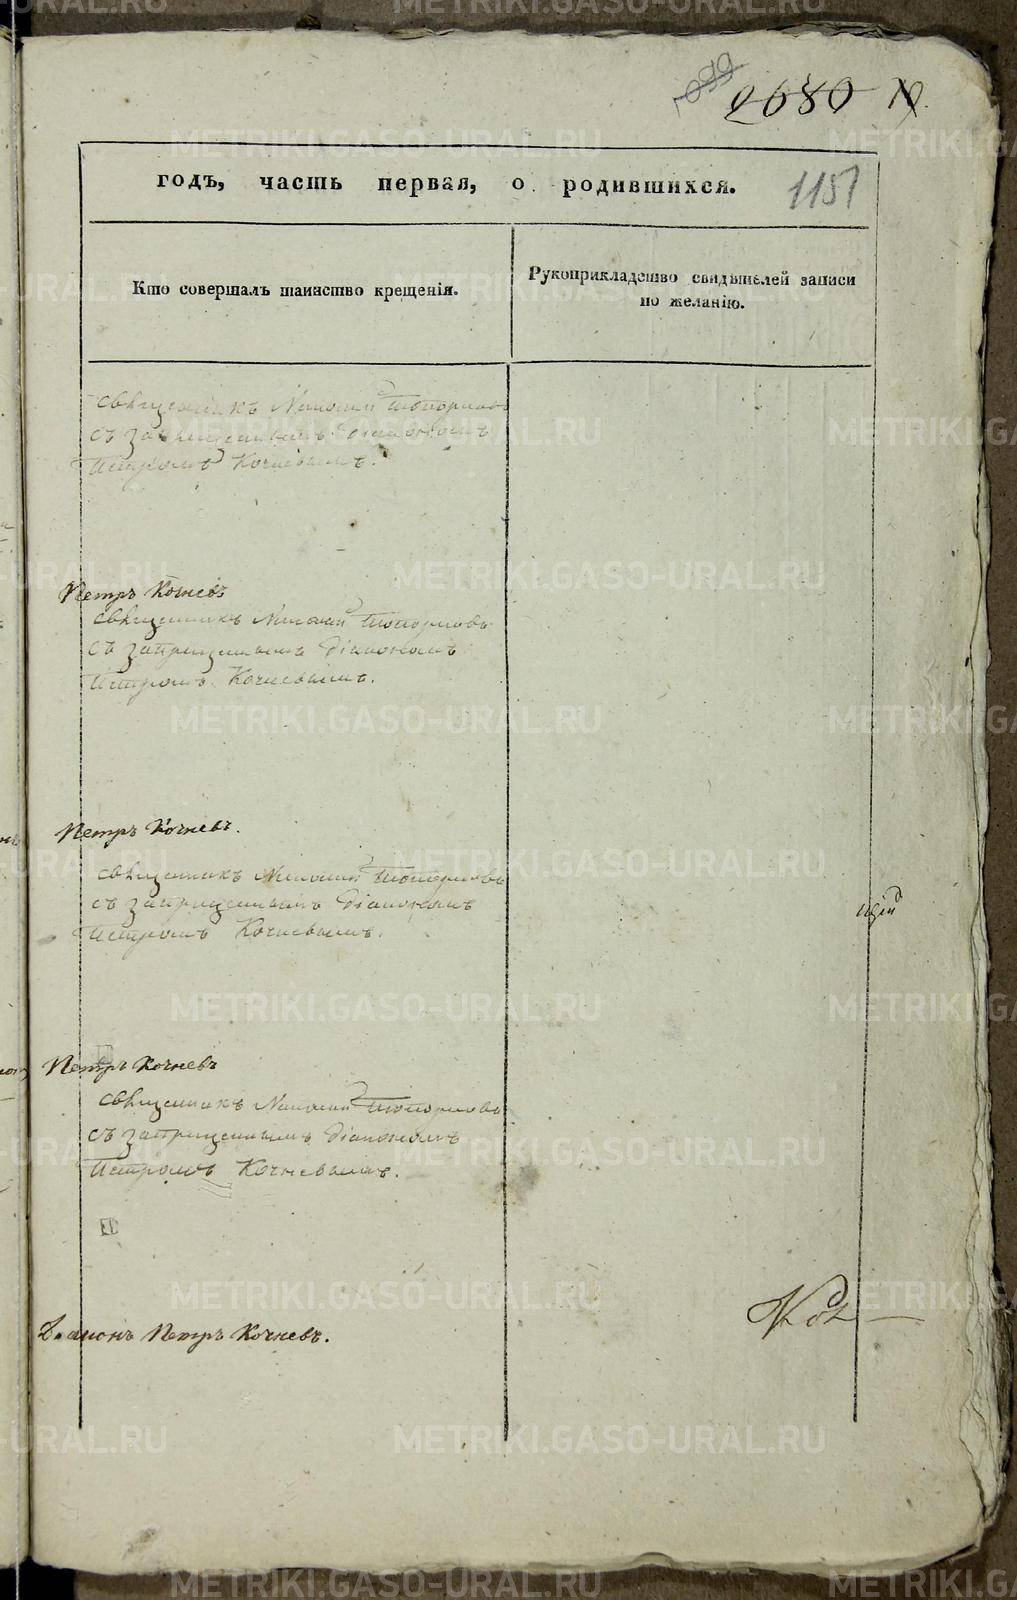 1099
2680
1151
годъ, часть первая, о родившихся.
Кто совершалъ таинство крещенія.
Рукоприкладство свидѣтелей записи
по желанію.
священникъ Николай Топорковъ
съ запрещеннымъ діакономъ
Петромъ Кочневымъ.
Петръ Кочневъ
священникъ Николай Топорковъ
съ запрещеннымъ діакономъ
Петромъ Кочневымъ.
Петръ Кочневъ.
священникъ Николай Топорковъ
съ запрещеннымъ діакономъ
Петромъ Кочневымъ.
щій
Петръ Кочневъ
священникъ Николай Топорковъ
съ запрещеннымъ діакономъ
Петромъ Кочневымъ.
Діаконъ Петръ Кочневъ.
METRIKI.GASO-URAL.RU